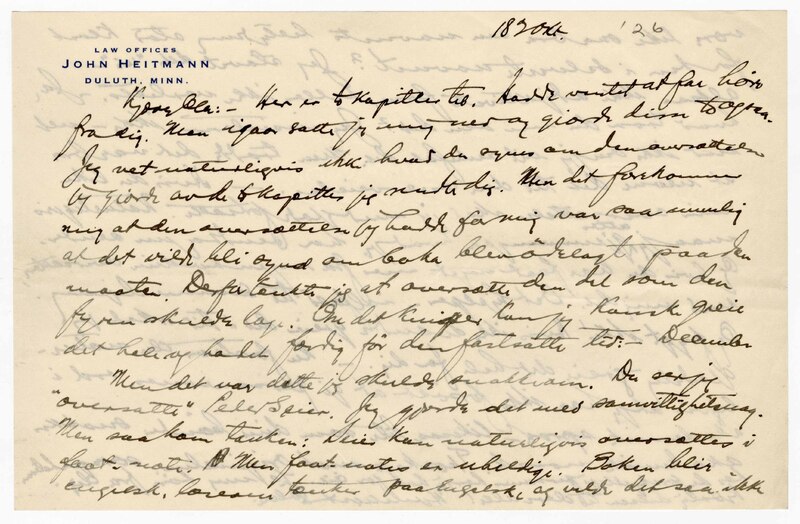 18 Okt. '26
LAW OFFICES
JOHN HEITMANN
DULUTH, MINN.
Kjære Ola:— Her er to kapitler til. Hadde ventet at faa høre
fra dig. Men igaar satte jeg mig ned og gjorde disse to ogsaa.
Jeg vet naturligvis ikke hvad du synes om den oversættelse
jeg gjorde av de to kapitler jeg sendte dig. Men det forekommer
mig at den oversættelse jeg hadde for mig var saa
at det vilde bli synd om boka blev ödelagt paa den
maaten. Derfor tænkte jeg at oversætte den del som den
fyren skulde lage. Om det kniper kan jeg kanske greie
det hele og ha det færdig før den fastsatte tid:— December
Men det var dette jeg skulde snakke om. Du ser jeg
"oversatte" Peder Seier. Jeg gjorde det med samvittighetsnag.
Men saa kom tanken: Seier kan naturligvis oversættes i
foot-note. Men foot-notes er uheldige. Boken blir
engelsk, læseren tænker paa engelsk, og vilde det saa ikke